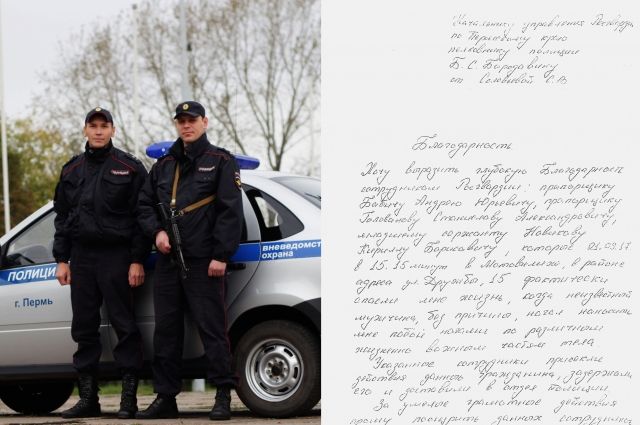 ПОЛИЦИЯ
г. Пермь
вневедомст
охрана
Начальнику управления Росгвардии
по Пермскому краю
полковнику полиции
Б. С. Бородавину
от Соловьевой С.В
Благодарность
Хочу выразить глубокую Благодарность
сотрудникам Росгвардии: прапорщику
Бабину Андрею Юрьевичу, прапорщику
Голованову Станиславу Александровичу,
младшему сержанту Новикову
Кириллу Борисовичу, которое 21.09.17
в 15.15 минут в Мотовилихе, в районе
адреса ул. Дружбы, 15 фактически
спасли мне жизнь, когда неизвестный
мужчина, без причины, начал наносить
мне побой ногами по различным
жизненно важным частям тела
Указанные сотрудники пресекли
действия данного гражданина, задержали
его и доставили в отдел полиции.
За умелые грамотные действия
прошу поощрить данных сотрудников